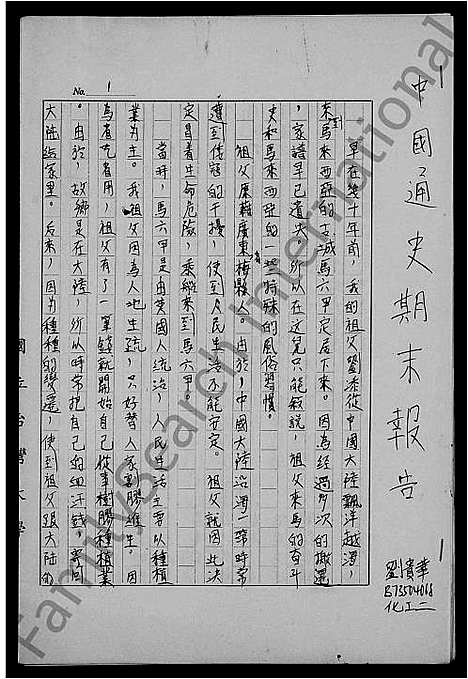 中國通史期末報告
劉貴華
B73504068
化工二
No. 1
早在幾十年前，我的祖父劉添從中國大陸飄洋越海，
來到馬來西亞的古城馬六甲定居下來。因為經過多次的搬遷
，家譜早已遺失。所以在這兒只能敘說，祖父來馬的奮斗
史和馬來西亞的一些特殊的風俗習慣。
祖父原籍廣東梅縣人。由於，中國大陸這一帶時常
遭到伐寇的干擾，使到人民生活不能安定。祖父就因此決
定冒着生命危險，乘船來到馬六甲。
當時，馬六甲是由英國人統治，人民生活主要以種植
業為主。我祖父因為人地生疏，只好替人家割膠維生。因
為省吃省用，祖父有了一筆錢就開始自己從事樹膠種植業
。由於，故鄉是在大陸，所以時常把自己的血汗錢，寄回
大陸給家里。后來，因為種種的變遷，使到祖父跟大陸的
國立台灣大學
FamilySearch International